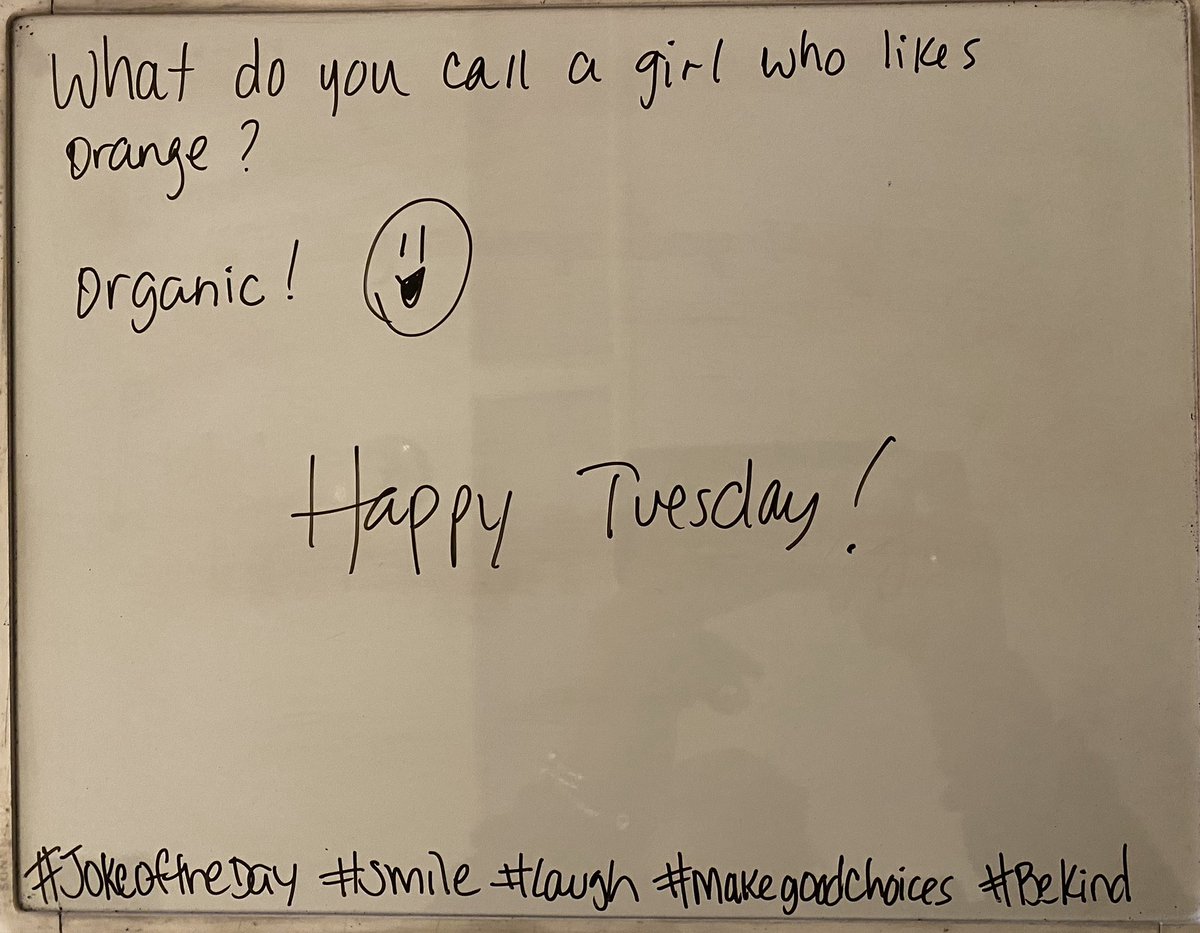 What do you call a girl who likes
orange?
Organic!
Happy Tuesday!
#JokeoftheDay #smile #Laugh #makegoodchoices #BeKind